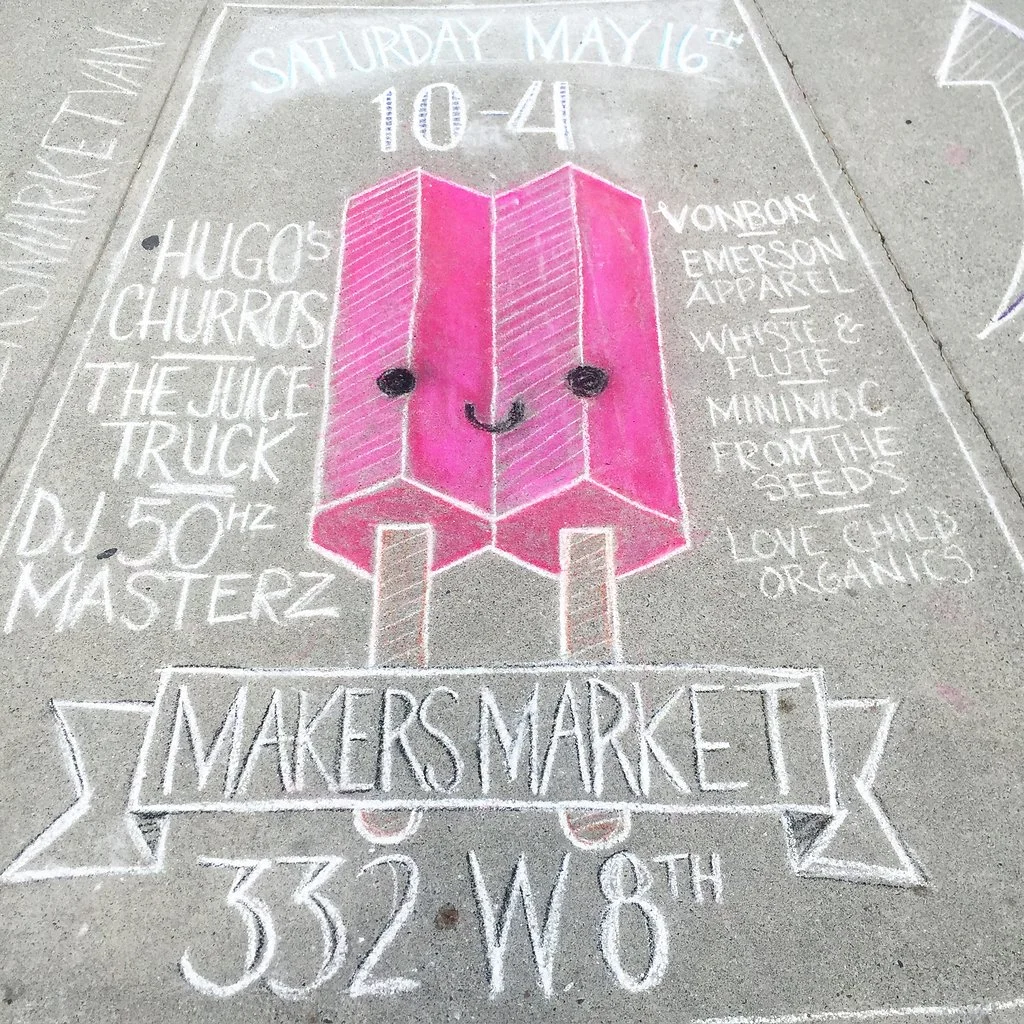 SATURDAY MAY 16TH
10-4
HUGO'S
CHURROS
THE JUICE
TRUCK
DJ 50HZ
MASTERZ
VONBON
EMERSON
APPAREL
WHISTE &
FLUTE
MINIMOC
FROM THE
SEEDS
LOVE CHILD
ORGANICS
MAKERS MARKET
332 W. 8TH